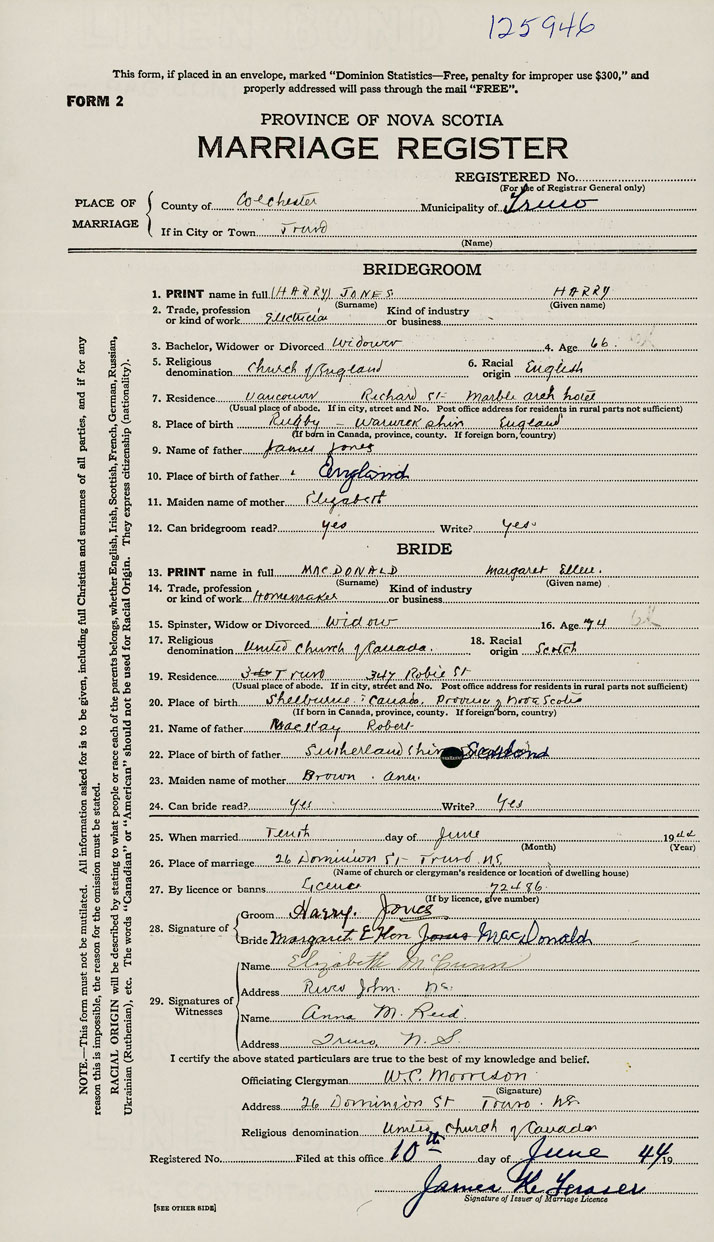 125946
This form, if placed in an envelope, marked "Dominion Statistics—Free, penalty for improper use $300," and
properly addressed will pass through the mail "FREE".
FORM 2
PROVINCE OF NOVA SCOTIA
MARRIAGE REGISTER
REGISTERED No.
(For use of Registrar General only)
PLACE OF MARRIAGE
County of Colchester Municipality of Truro
If in City or Town Truro
(Name)
BRIDEGROOM
1. PRINT name in full (HARRY) JONES HARRY
(Surname) (Given name)
2. Trade, profession or kind of work Electrician Kind of industry or business
3. Bachelor, Widower or Divorced Widower 4. Age 66
5. Religious denomination Church of England 6. Racial origin English
7. Residence Vancouver Richard St- Marble arch hotel
(Usual place of abode. If in city, street and No. Post office address for residents in rural parts not sufficient)
8. Place of birth Rugby - Warwick shire England
(If born in Canada, province, county. If foreign born, country)
9. Name of father James Jones
10. Place of birth of father England
11. Maiden name of mother Elizabeth
12. Can bridegroom read? yes Write? yes
BRIDE
13. PRINT name in full MACDONALD Margaret Ellen.
(Surname) (Given name)
14. Trade, profession or kind of work Homemaker Kind of industry or business
15. Spinster, Widow or Divorced Widow 16. Age 74
17. Religious denomination United Church of Canada. 18. Racial origin Scotch
19. Residence Truro 347 Robie St
(Usual place of abode. If in city, street and No. Post office address for residents in rural parts not sufficient)
20. Place of birth Shelburne Canada, Province of Nova Scotia
(If born in Canada, province, county. If foreign born, country)
21. Name of father MacKay Robert
22. Place of birth of father Sutherland shire Scotland
23. Maiden name of mother Brown Ann.
24. Can bride read? yes Write? Yes
25. When married Tenth day of June 1944
(Month) (Year)
26. Place of marriage 26 Dominion St- Truro NS
(Name of church or clergyman's residence or location of dwelling house)
27. By licence or banns Licence 72486
(If by licence, give number)
28. Signature of
Groom Harry. Jones
Bride Margaret Ellen Jones MacDonald
29. Signatures of Witnesses
Name Elizabeth McCunn
Address River John. NS.
Name Anna M. Reid.
Address Truro, N.S.
I certify the above stated particulars are true to the best of my knowledge and belief.
Officiating Clergyman W.C. Morrison
(Signature)
Address 26 Dominion St Truro. NS.
Religious denomination United Church of Canada
Registered No. Filed at this office 10th day of June 44 19
James K. Fraser
Signature of Issuer of Marriage Licence
[SEE OTHER SIDE]
NOTE.—This form must not be mutilated. All information asked for is to be given, including full Christian and surnames of all parties, and if for any
reason this is impossible, the reason for the omission must be stated.
RACIAL ORIGIN will be described by stating to what people or race each of the parents belongs, whether English, Irish, Scottish, French, German, Russian,
Ukrainian (Ruthenian), etc. The words "Canadian" or "American" should not be used for Racial Origin. They express citizenship (nationality).